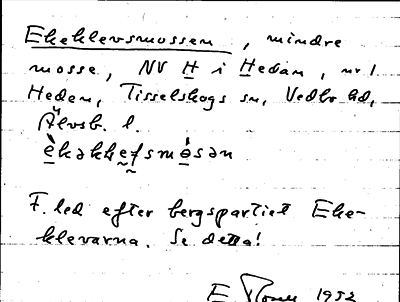 Ekeklevsmossen, mindre
mosse, NV H i Hedan, nr 1
Heden, Tisselskogs sn, Vedbo hd,
Älvsb. l.
èkəkhefsmósən
F. led efter bergspartiet Eke-
klevarna. Se detta!
E 1952